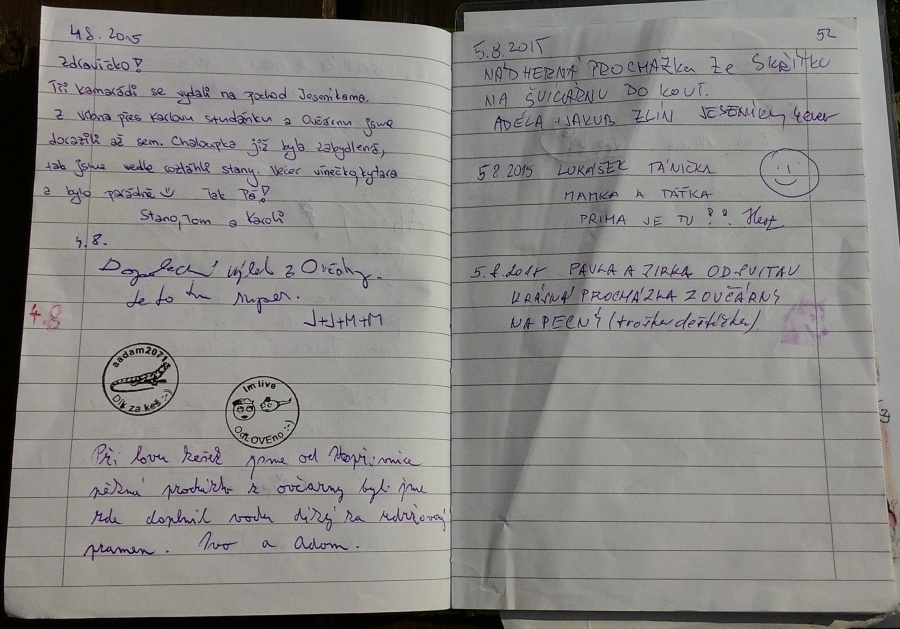 4.8. 2015
Zdravíčko!
Tři kamarádi se vydali na pochod Jeseníkama.
z Vrbna přes Karlovu studánku a Ovčárnu jsme
dorazili až sem. Chaloupka již byla zabydlená,
tak jsme vedle rozláhli stany. Večer vínečko, kytara
a bylo parádně Tak Pá!
Stano, Tom a Karoli
4.8.
Dopolední výlet z Ovčárny.
Je to tu super.
J+J+M+M
4.8
aadam2071
Dík za keš :-)
Im live
OdLOVEno :-)
Při lovu kešek jsme od Kopřivnice
pěkná procházka z ovčárny byli jsme
zde doplnil vodu díky za udržovaný
pramen. Ivo a Adam.
52
5.8.2015
NÁDHERNÁ PROCHÁZKA ZE SKŘÍTKU
NA ŠVÝCÁRNU DO KOUT.
ADÉLA + JAKUB ZLÍN JESENÍKY 4ever
5 8 2015 LUKÁŠEK TÁNIČKA
MAMKA A TAŤKA
PRIMA JE TU
5.8.2015 PAVLA A JIRKA OD SVITAV
KRÁSNÁ PROCHÁZKA Z OVČÁRNY
NA PECNÝ (trošku deštíček)